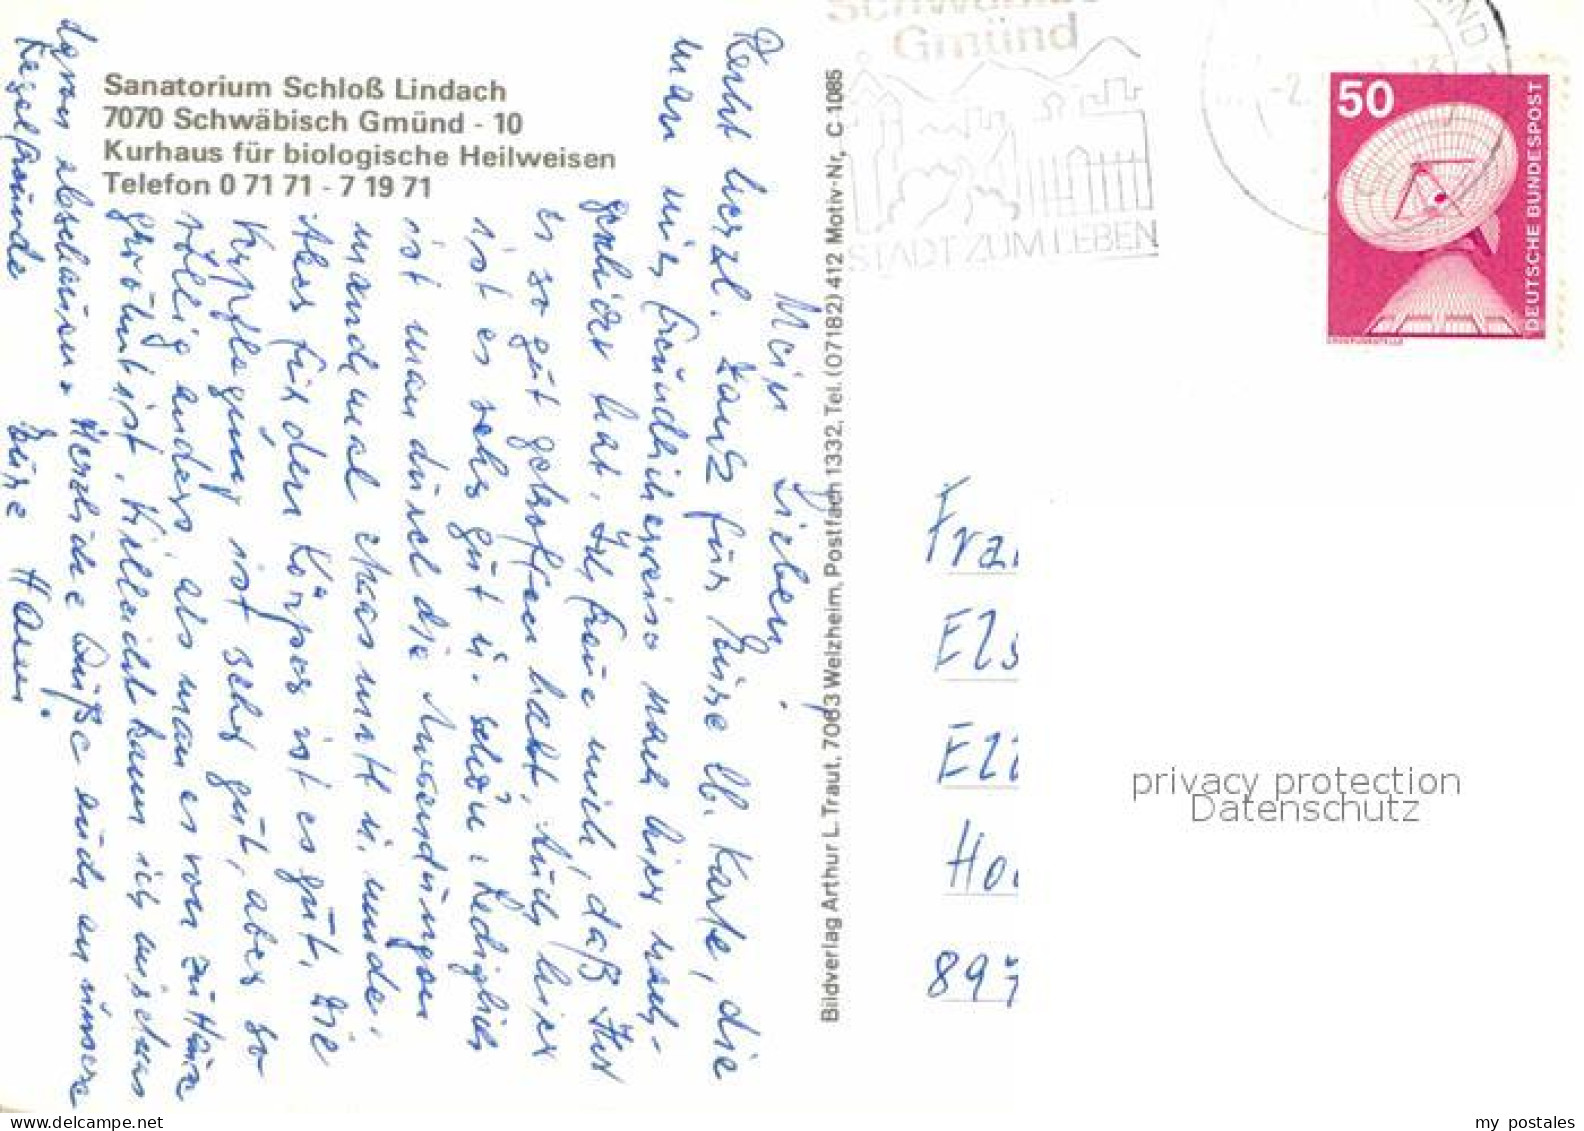 Sanatorium Schloß Lindach
7070 Schwäbisch Gmünd - 10
Kurhaus für biologische Heilweisen
Telefon 0 71 71 - 7 19 71
Meine Lieben!
Recht herzl. Dank für Eure lb. Karte, die
man mir freundlicherweise nach hier nach-
geschickt hat. Ich freue mich, daß Ihr
es so gut getroffen habt. Auch hier
ist es sehr gut u. schön. Lediglich
ist man durch die Anwendungen
manchmal etwas matt u. müde.
Aber für den Körper ist es gut. Die
Verpflegung ist sehr gut, aber so
völlig anders, als man es von zu Hause
gewöhnt ist. Vielleicht kann ich mir was
davon abschauen. Herzliche Grüße auch an unsere
Kegelfreunde Eure Hanni.
Bildverlag Arthur L. Traut, 7063 Welzheim, Postfach 1332, Tel. (07182) 412 Motiv-Nr. C 1085
Schwäbisch
Gmünd
STADT ZUM LEBEN
50
DEUTSCHE BUNDESPOST
ERDEFUNKSTELLE
Els
Ho
897
privacy protection
Datenschutz
my postales